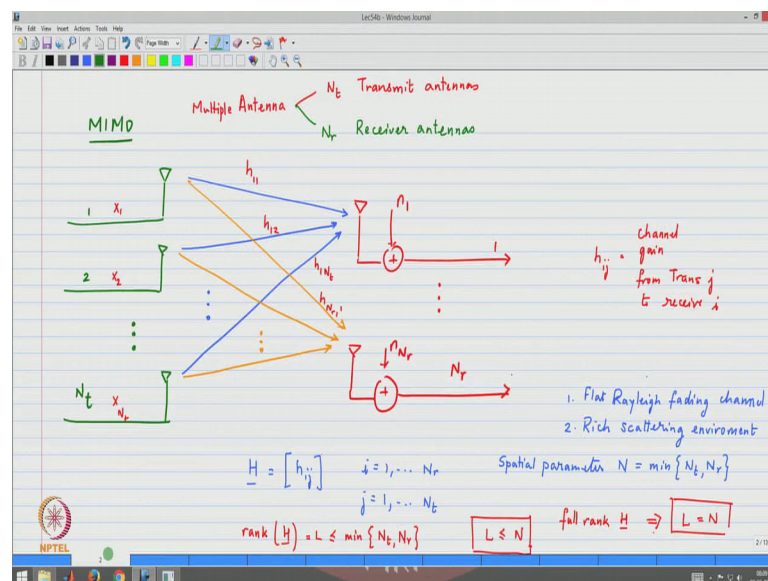 Lec54b - Windows Journal
File Edit View Insert Actions Tools Help
Page Width
B I
Multiple Antenna
N_t Transmit antennas
N_r Receiver antennas
MIMO
1 x_1
2 x_2
N_t x_{N_t}
h_{11}
h_{12}
h_{1N_t}
h_{N_r,1}
n_1
+
1
n_{N_r}
+
N_r
h_{ij} = channel
gain
from Trans j
to receive i
1. Flat Rayleigh fading channel
2. Rich scattering enviroment
H = [h_{ij}] i = 1, ... N_r
j = 1, ... N_t
Spatial parameter N = min{N_t, N_r}
rank(H) = L ≤ min{N_t, N_r}
L ≤ N
full rank H ⇒ L = N
NPTEL
2